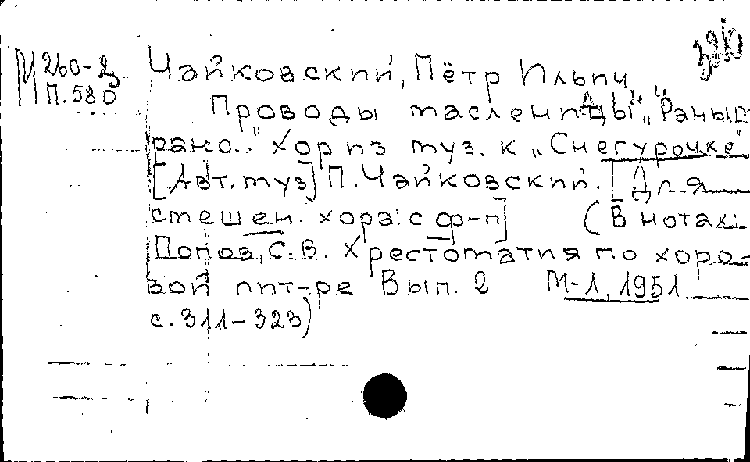 М 260-2
П.580
Чайковский, Пётр Ильич
Проводы масленицы", "Раным
рано.." Хор из муз. к „Снегурочке"
[Авт. муз] П. Чайковский. [Для
смешен. хора: с ф-п] (В нотах:
Попов, С.В. Хрестоматия по хоро-
вой лит-ре Вып. 2 М-Л, 1951
с. 311-323)